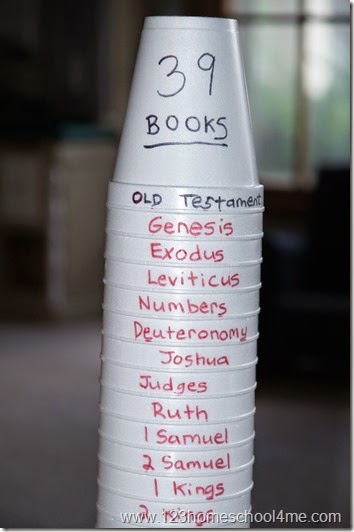 39
BOOKS
OLD Testament
Genesis
Exodus
Leviticus
Numbers
Deuteronomy
Joshua
Judges
Ruth
1 Samuel
2 Samuel
1 Kings
2 Kings
www.123homeschool4me.com